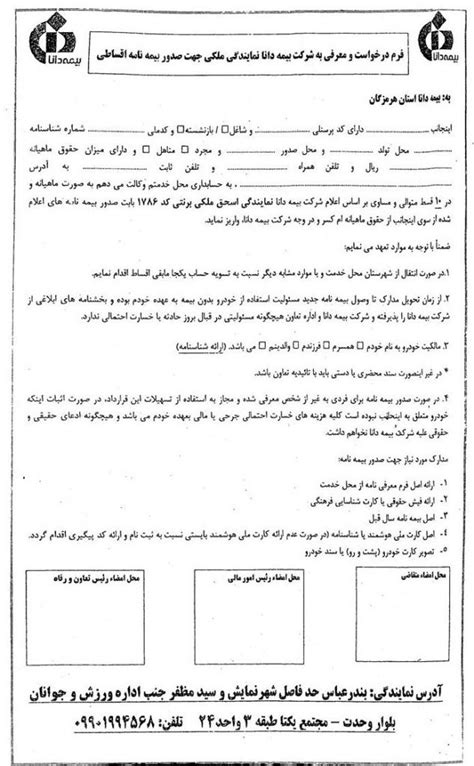 بیمه دانا
فرم درخواست و معرفی به شرکت بیمه دانا نمایندگی ملکی جهت صدور بیمه نامه اقساطی
بیمه دانا
به: بیمه دانا استان هرمزگان
اینجانب ........ دارای کد پرسنلی ........ و شاغل □ / بازنشسته □ و کدملی ........ شماره شناسنامه
........ محل تولد ........ و محل صدور ........ و مجرد □ متاهل □ و دارای میزان حقوق ماهیانه
........ ریال و تلفن همراه ........ و تلفن ثابت ........ به آدرس
........ به حسابداری محل خدمتم وکالت می دهم به صورت ماهیانه و
در ۱۰ قسط متوالی و مساوی بر اساس اعلام شرکت بیمه دانا نمایندگی اسحق ملکی برنتی کد ۱۷۸۶ بابت صدور بیمه نامه های اعلام
شده از سوی اینجانب از حقوق ماهیانه ام کسر و در وجه شرکت بیمه دانا، واریز نماید.
ضمناً با توجه به موارد تعهد می نمایم:
۱.در صورت انتقال از شهرستان محل خدمت و یا موارد مشابه دیگر نسبت به تسویه حساب یکجا مابقی اقساط اقدام نمایم.
۲. از زمان تحویل مدارک تا وصول بیمه نامه جدید مسئولیت استفاده از خودرو بدون بیمه به عهده خودم بوده و بخشنامه های ابلاغی از
شرکت بیمه دانا را پذیرفته و شرکت بیمه دانا و اداره تعاون هیچگونه مسئولیتی در قبال بروز حادثه یا خسارت احتمالی ندارد.
۳. مالکیت خودرو به نام خودم □ همسرم □ فرزندم □ والدینم □ می باشد. (ارائه شناسنامه)
* در غیر اینصورت سند محضری یا دستی باید با تائیدیه تعاون باشد.
۴. در صورت صدور بیمه نامه برای فردی به غیر از شخص معرفی شده و مجاز به استفاده از تسهیلات این قرارداد، در صورت اثبات اینکه
خودرو متعلق به اینجانب نبوده است کلیه هزینه های خسارت احتمالی جرحی یا مالی بعهده خودم می باشد و هیچگونه ادعای حقیقی و
حقوقی علیه شرکت بیمه دانا نخواهم داشت.
مدارک مورد نیاز جهت صدور بیمه نامه:
۱- ارائه اصل فرم معرفی نامه از محل خدمت
۲- ارائه فیش حقوقی یا کارت شناسایی فرهنگی
۳- اصل بیمه نامه سال قبل
۴- اصل کارت ملی هوشمند یا شناسنامه (در صورت عدم ارائه کارت ملی هوشمند بایستی نسبت به ثبت نام و ارائه کد پیگیری اقدام گردد.
۵- تصویر کارت خودرو (پشت و رو) یا سند خودرو
محل امضاء متقاضی
محل امضاء رئیس امور مالی
محل امضاء رئیس تعاون و رفاه
آدرس نمایندگی: بندرعباس حد فاصل شهرنمایش و سید مظفر جنب اداره ورزش و جوانان
بلوار وحدت - مجتمع یکتا طبقه ۳ واحد ۲۴ تلفن: ۰۹۹۰۱۹۹۴۵۶۸